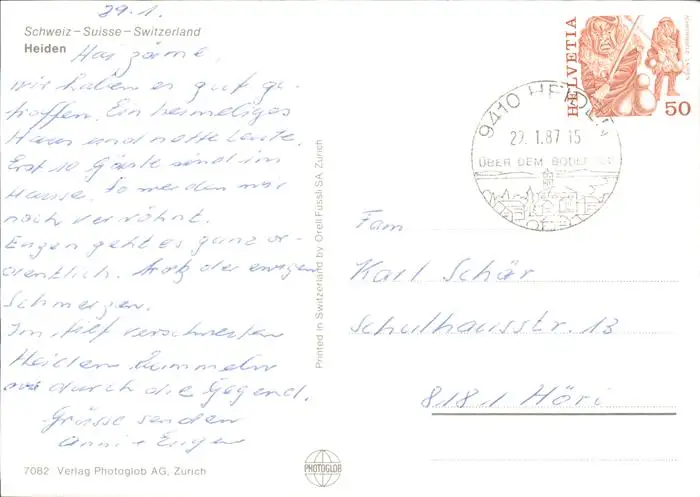 29.1.
Schweiz – Suisse – Switzerland
Heiden
Hoi zäme,
wir haben es gut ge-
troffen. Ein heimeliges
Haus und nette Leute.
Erst 10 Gäste sind im
Hause. So werden wir
noch verwöhnt.
Eugen geht es ganz or-
dentlich. trotz der ewigen
Schmerzen.
Im tief verschneiten
Heiden bummeln
wir durch die Gegend.
Grüsse senden
Anni + Eugen
7082 Verlag Photoglob AG, Zürich
Printed in Switzerland by Orell Füssli SA, Zürich
PHOTOGLOB
HELVETIA
50
9410 HEIDEN
29.1.87 15
ÜBER DEM BODENSEE
Fam
Karl Schär
Schulhausstr. 13
8181 Höri